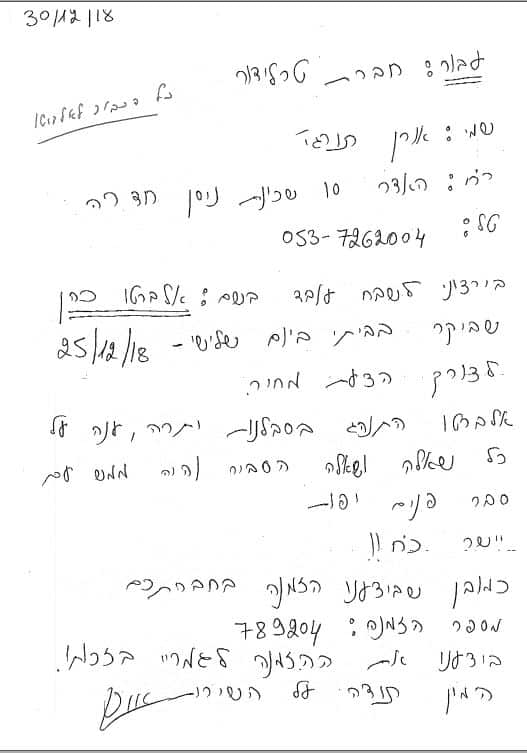 30/12/18
עבור: חברת טרלידור
כל הכבוד לאלברטו
שמי: אורן תורג'י
רח': האדר 10 שכונת ניסן חדרה
טל: 053-7262004
ברצוני לשבח עובד בשם: אלברטו כהן
שביקר בביתי ביום שלישי - 25/12/18
לצורך הצעת מחיר.
אלברטו התנהג בסבלנות יתרה, ענה על
כל שאלה ושאלה הסביר והיה ממש עם
סבר פנים יפות
יישר כח!!
כמובן שביצענו הזמנה בחברתכם
מספר הזמנה: 789204
ביצענו את ההזמנה לגמרי בזכותו!
המון תודה על השירות